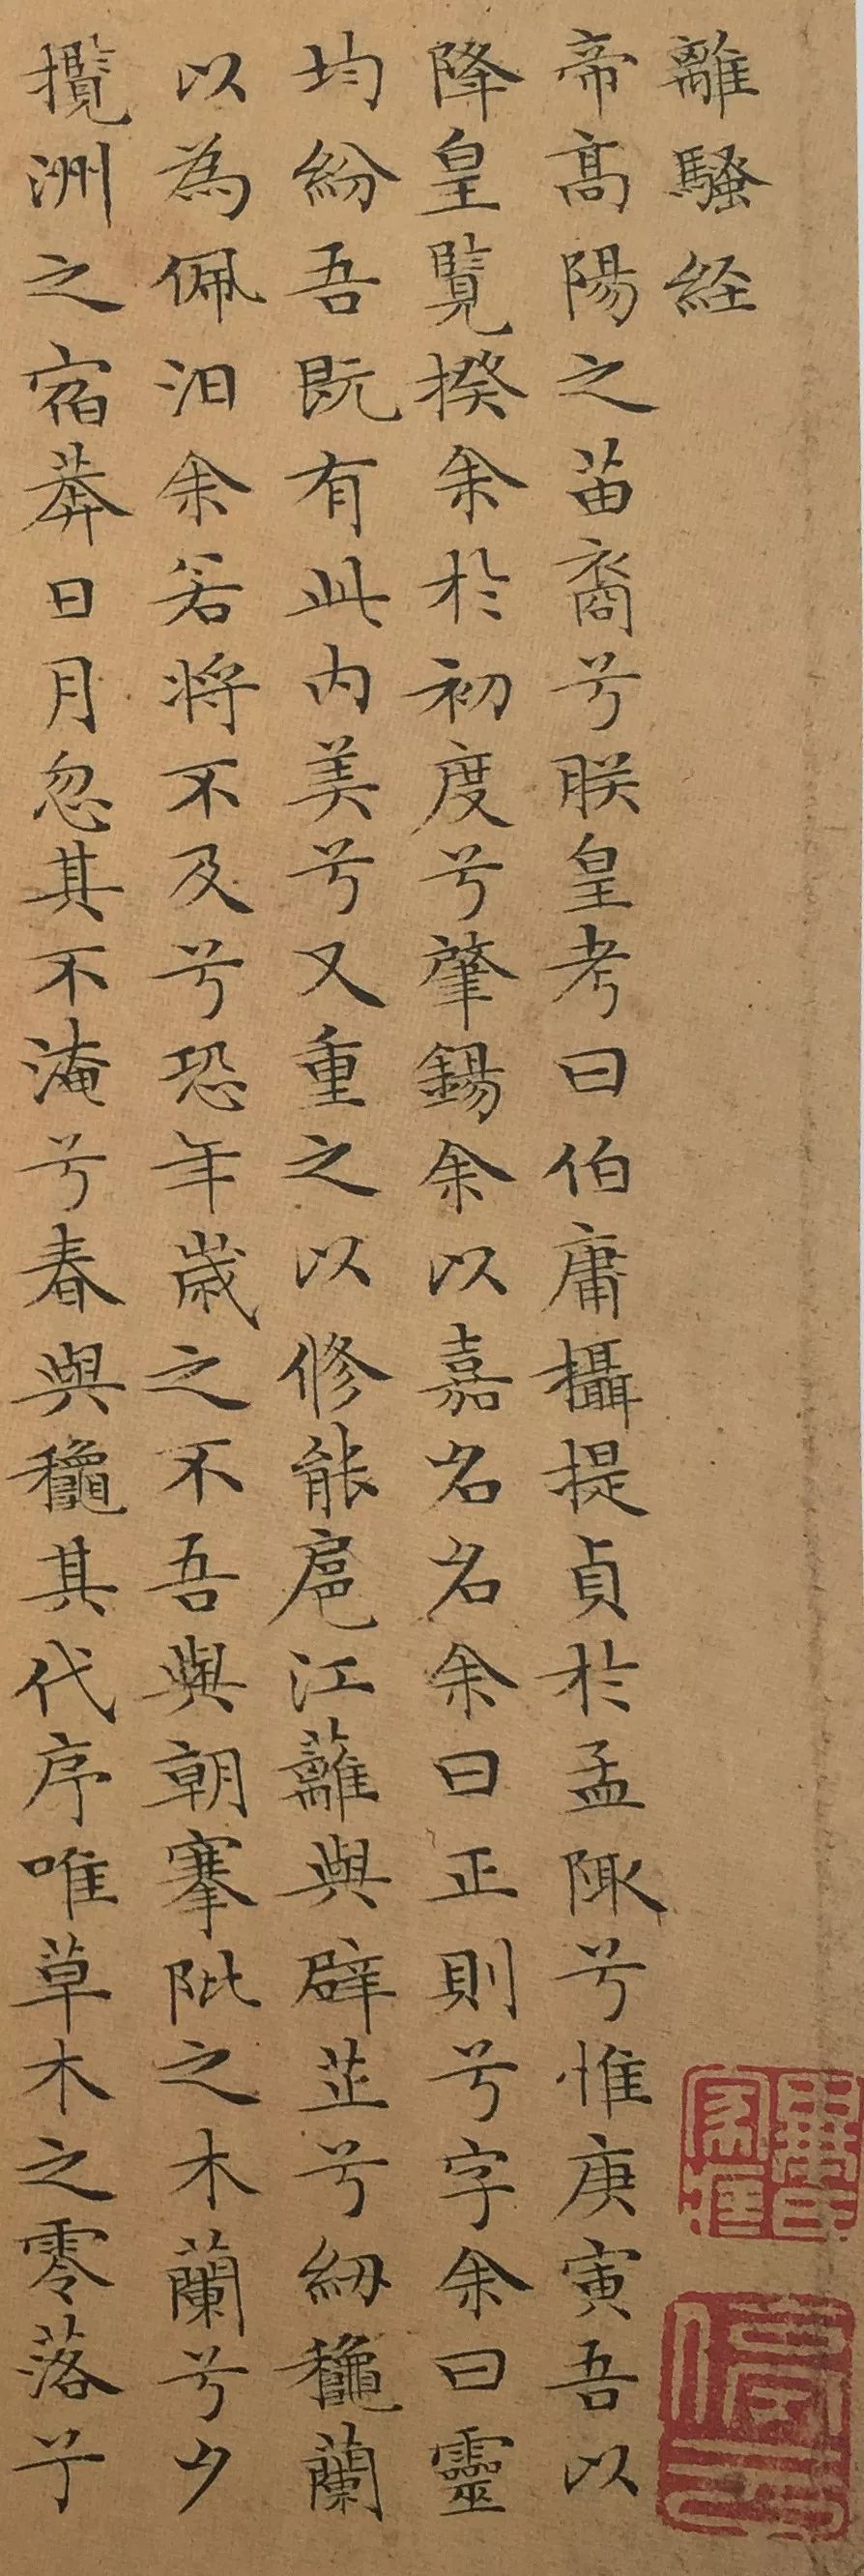 離騷経
帝髙陽之苗裔兮朕皇考曰伯庸攝提貞於孟陬兮惟庚寅吾以
降皇覽揆余於初度兮肇錫余以嘉名名余曰正則兮字余曰靈
均紛吾既有此内美兮又重之以修能扈江蘺與辟芷兮紉龝蘭
以為佩汨余若将不及兮恐年歳之不吾與朝搴阰之木蘭兮夕
攬洲之宿莽日月忽其不淹兮春與龝其代序唯草木之零落兮